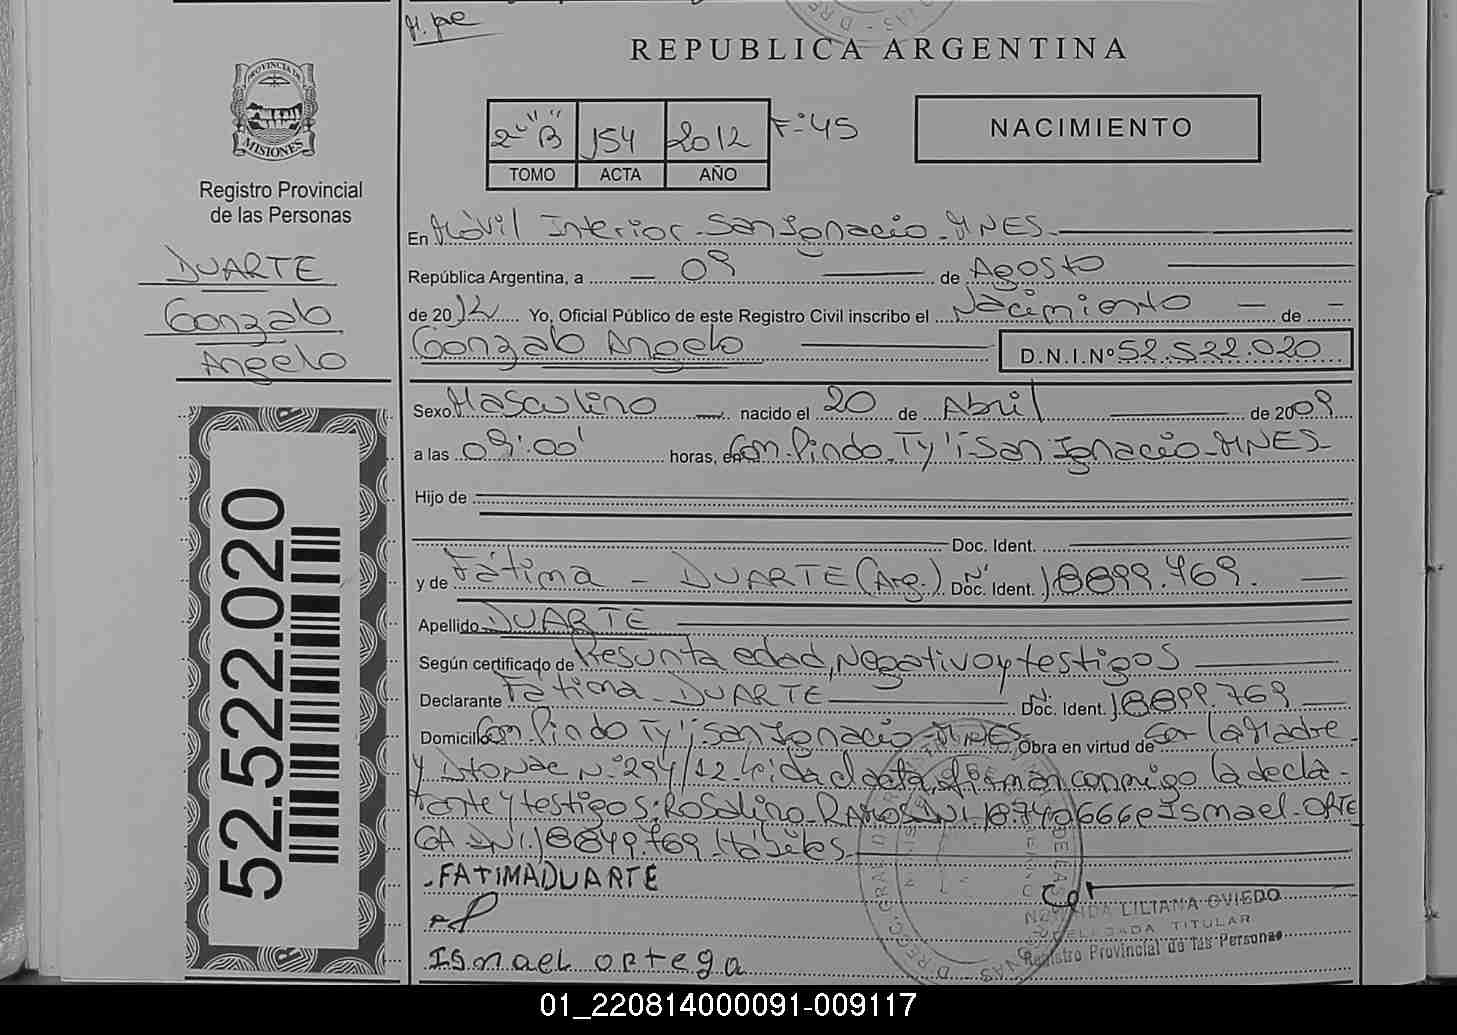 M. pe
REPUBLICA ARGENTINA
PROVINCIA DE
MISIONES
Registro Provincial
de las Personas
DUARTE
Gonzalo
Angelo
2º "B" 154 2012 Fº 45
TOMO ACTA AÑO
NACIMIENTO
En Móvil Interior - San Ignacio - MNES.
República Argentina, a 09 de Agosto
de 2012 Yo, Oficial Público de este Registro Civil inscribo el Nacimiento de
Gonzalo Angelo D.N.I.Nº 52.522.020
Sexo Masculino nacido el 20 de Abril de 2009
a las 09:00' horas, en Com. Pindo Ty'i - San Ignacio - MNES -
Hijo de
Doc. Ident.
y de Fátima - DUARTE (Arg.) Doc. Ident. Nº 18899.769.
Apellido DUARTE
Según certificado de Presunta edad, Negativo y testigos
Declarante Fátima - DUARTE Doc. Ident. Nº 18899.769
Domicilio Com. Pindo Ty'i San Ignacio - MNES Obra en virtud de Ser la Madre
y Nº 294/12 - Leída el acta, firman conmigo la decla-
rante y testigos: Rosalino - RAMOS DNI. 18740666 e Ismael - ORTE
GA - DNI. 18849769 - Hábiles
FATIMA DUARTE
ISMAEL ORTEGA
LILIANA OVIEDO
DELEGADA TITULAR
Registro Provincial de las Personas
52.522.020
01_220814000091-009117